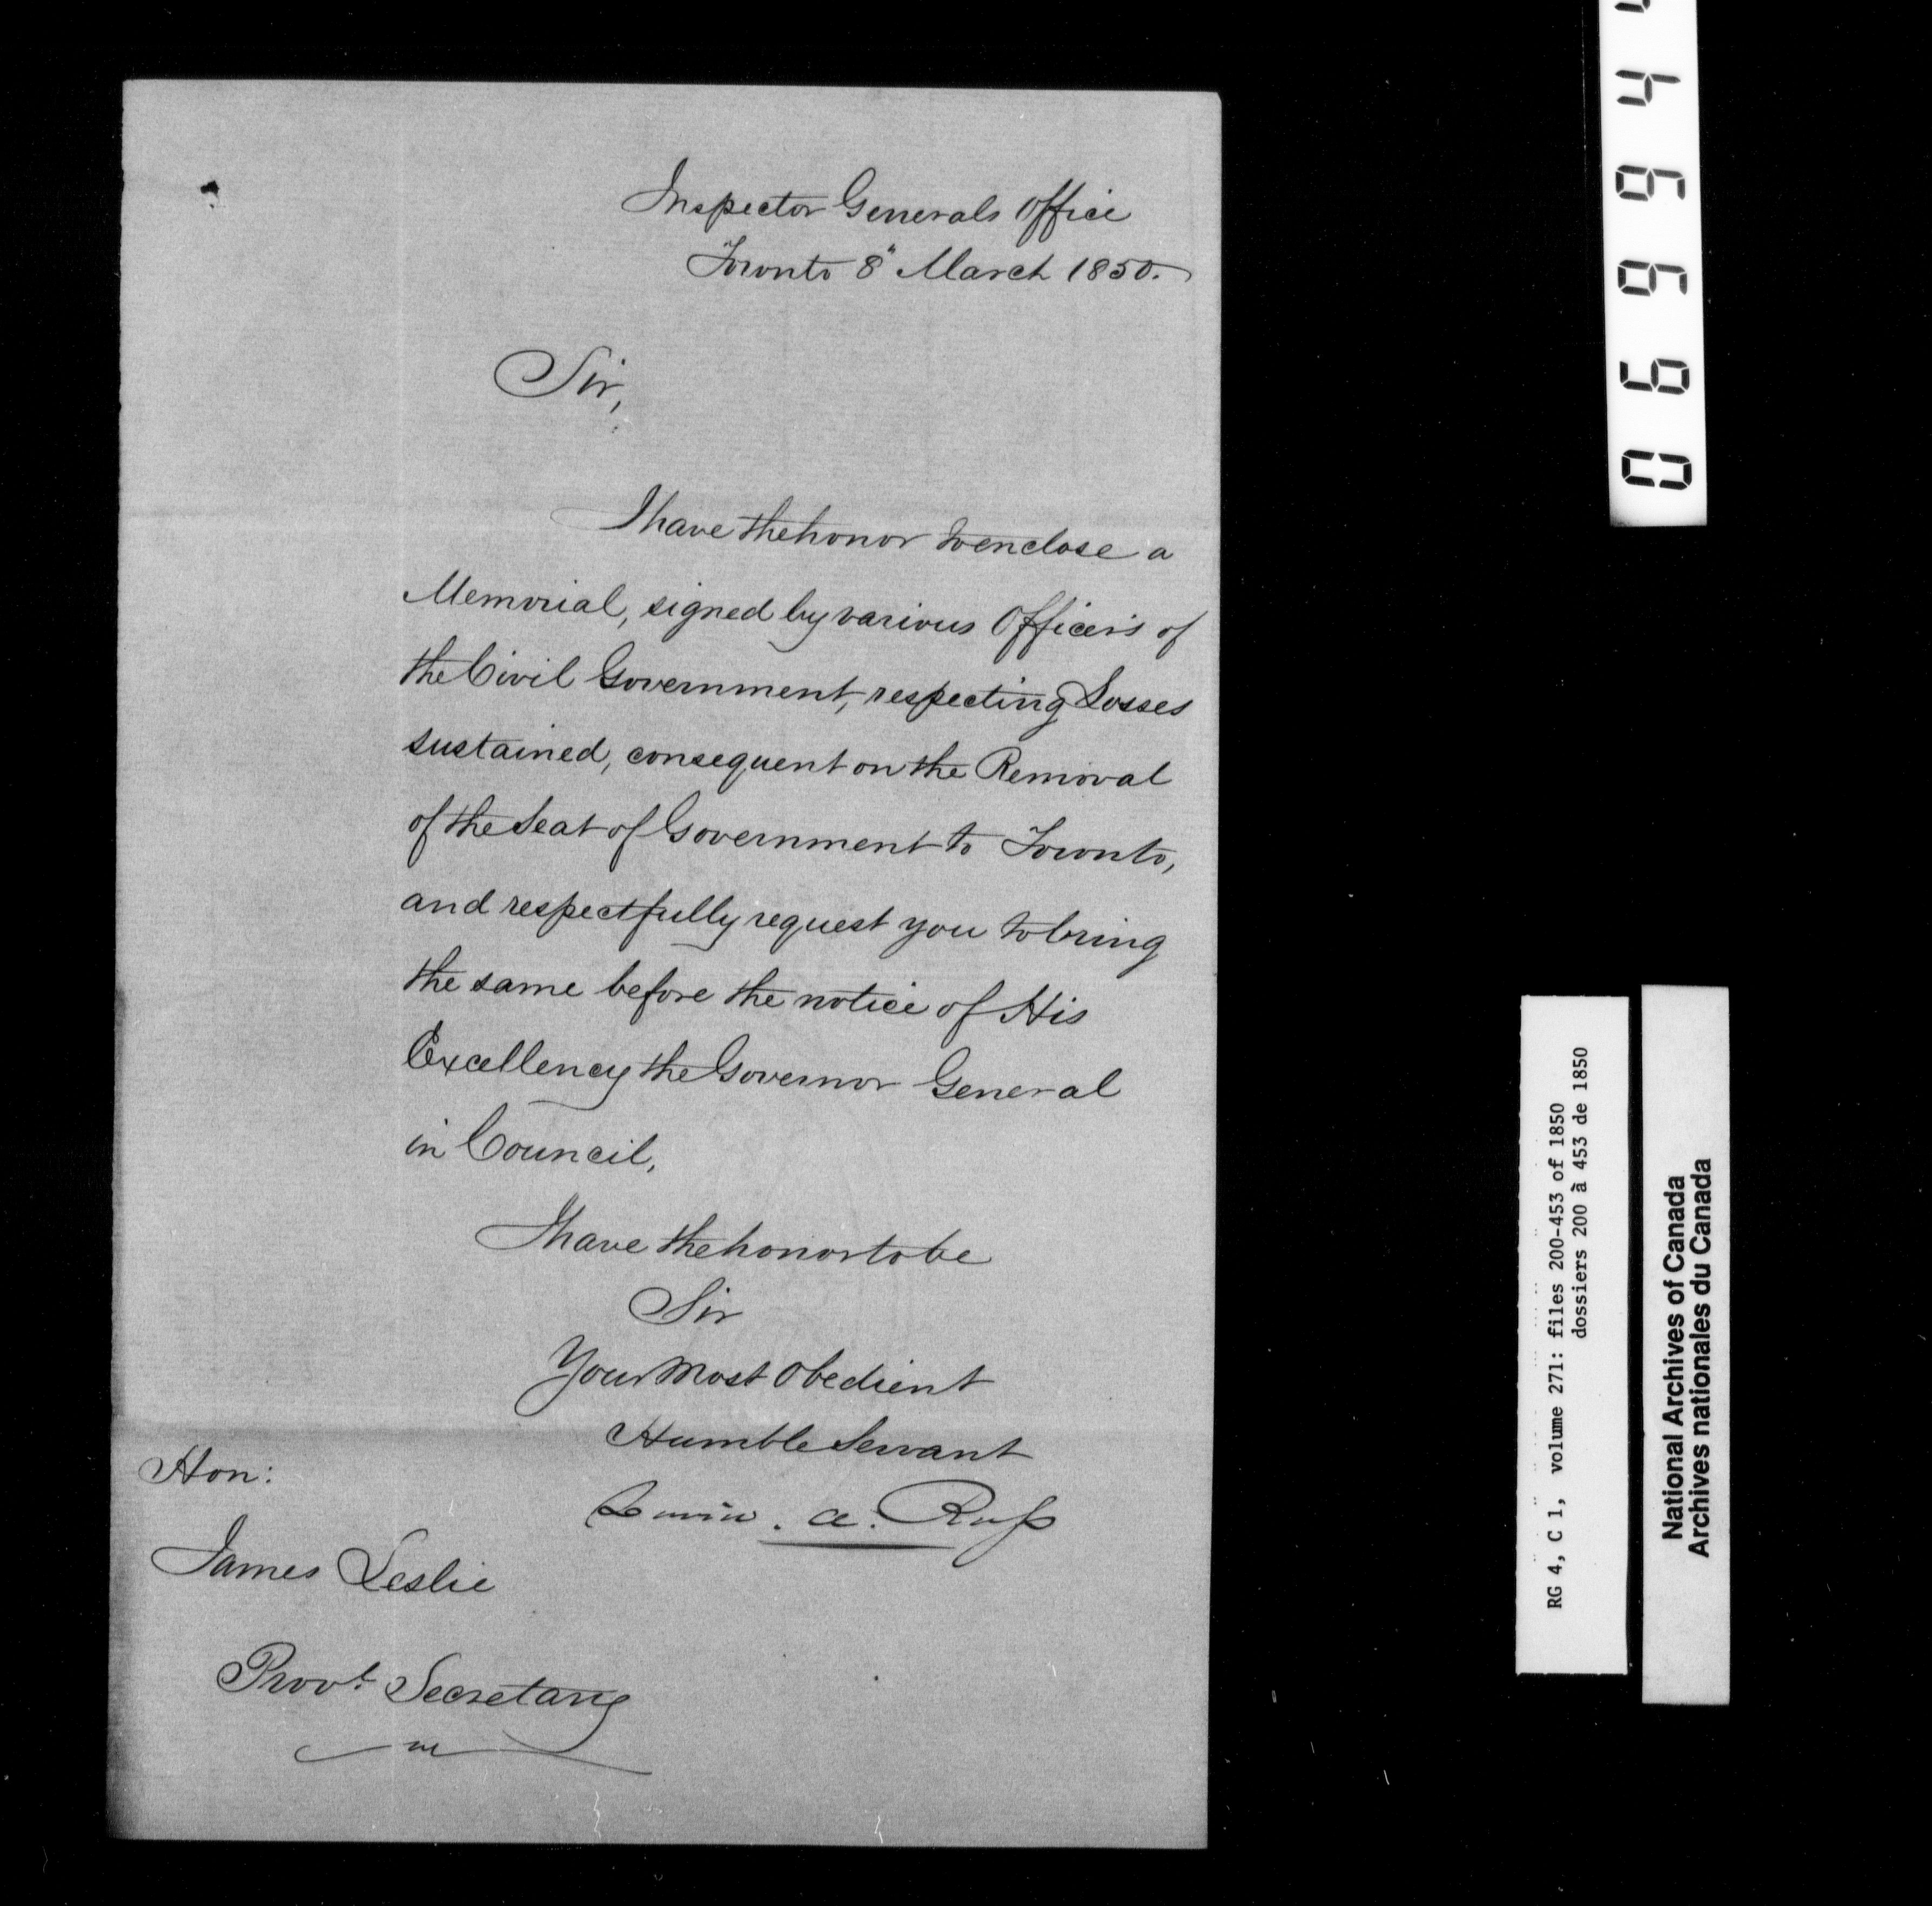 Inspector Generals Office
Toronto 8" March 1850.
Sir,
I have the honor to enclose a
Memorial, signed by various Officers of
the Civil Government, respecting Losses
sustained, consequent on the Removal
of the Seat of Government to Toronto,
and respectfully request you to bring
the same before the notice of His
Excellency the Governor General
in Council.
I have the honor to be
Sir
Your Most Obedient
Humble Servant
A. Ross
Hon:
James Leslie
Provl. Secretary
06994
RG 4, C 1, volume 271: files 200-453 of 1850
dossiers 200 à 453 de 1850
National Archives of Canada
Archives nationales du Canada